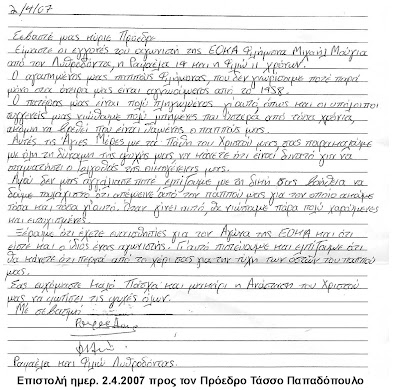 2/4/07
Σεβαστέ μας κύριε Πρόεδρε
Είμαστε οι εγγονές του αγωνιστή της ΕΟΚΑ Φιλήμονα Μιχαήλ
από τον Λυθροδόντα, η Ραφαέλα 14 και η Φιλιώ 11 χρόνων.
Ο αγαπημένος μας παππούς Φιλήμονας, που δεν γνωρίσαμε ποτέ παρά
μόνο στα όνειρα μας είναι αγνοούμενος από το 1958.
Ο πατέρας μας είναι πολύ πληγωμένος γι'αυτό, όπως και οι υπόλοιποι
συγγενείς μας νιώθουμε πολύ που ύστερα από τόσα χρόνια,
ακόμη να βρεθεί που είναι θαμμένος ο παππούς μας.
Αυτές τις Άγιες Μέρες με τα Πάθη του Χριστού μας, σας παρακαλούμε
με όλη τη δύναμη της ψυχής μας να κάνετε ότι είναι δυνατό για να
σταματήσει ο της οικογένειας μας.
Αφού δεν μας ποτέ ελπίζουμε με τη δική σας βοήθεια να
δούμε τουλάχιστο ότι απέμεινε από τον παππού μας για τον οποίο ακούμε
τόσα και τόσα γι'αυτό. Όταν γίνει αυτό, θα νιώσουμε πάρα πολύ χαρούμενες
και ευτυχισμένες.
Ξέρουμε ότι έχετε ευαισθησίες για τον Αγώνα της ΕΟΚΑ και ότι
είστε και ο ίδιος ένας αγωνιστής. Γι'αυτό πιστεύουμε και ελπίζουμε ότι
θα κάνετε ότι περνά από το χέρι σας για την τύχη των οστών του παππού
μας.
Σας ευχόμαστε Καλό Πάσχα και μακάρι η Ανάσταση του Χριστού
μας να φωτίσει τις ψυχές όλων.
Με σεβασμό
Ραφαέλα και Φιλιώ Λυθροδόντας.
Επιστολή ημερ. 2.4.2007 προς τον Πρόεδρο Τάσσο Παπαδόπουλο